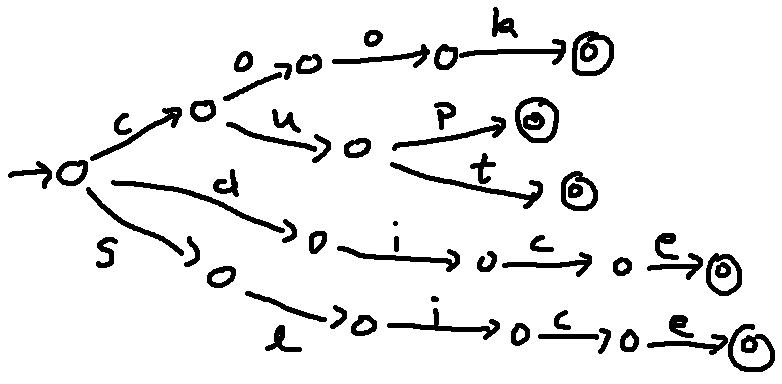 c
o
o
k
u
p
t
d
i
c
e
s
l
i
c
e